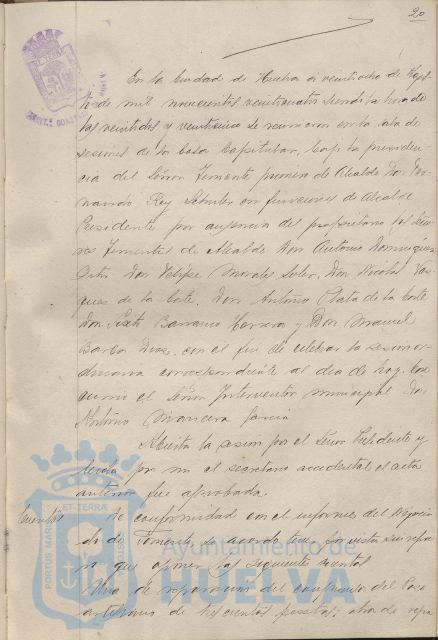 20
En la Ciudad de Huelva a veintiocho de
de mil novecientos veinticuatro siendo la hora de
las veintidos y veinticinco se reunieron en la sala de
sesiones de la Casa Capitular, bajo la presiden-
cia del Señor Teniente primero de Alcalde Don Fer-
nando Rey en funciones de Alcalde
Presidente por ausencia del propietario los Seño-
res Tenientes de Alcalde Don Antonio Dominguez
Don Felipe Morales Soler, Don Nicolas Vaz-
quez de la Corte, Don Antonio Plata de la Corte
Don Sixto Barranco Herrera y Don Manuel
Barba Diaz, con el fin de celebrar la sesion or-
dinaria correspondiente al dia de hoy. Con-
currio el Señor Interventor municipal Don
Antonio Mancera Garcia
Abierta la sesion por el Señor Presidente y
leida por mi el secretario accidental el acta
anterior fue aprobada.
Cuentas
De conformidad con el informe del Negocia-
do de Fomento, se acordó
que oponer las siguientes cuentas
Una de reparacion del
de pesetas; otra de repa
Ayuntamiento de
HUELVA
PORTUS MARIS ET TERRAE CUSTODIA